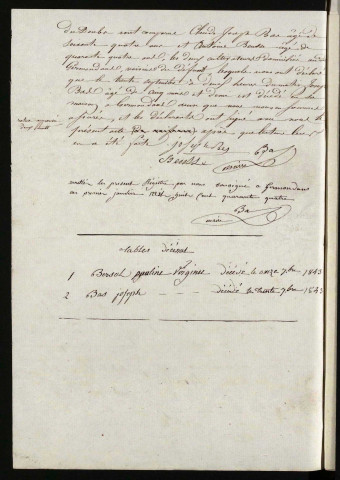 du Doubs sont comparus Claude Joseph Bas âgé de
soixante quatre ans et Antoine Beuda âgé de
quarante quatre ans, les deux cultivateurs domiciliés à
Germondans, voisins du défunt, lesquels nous ont déclaré
que le trente septembre à douze heures du matin Joseph
Bas âgé de cinq ans et demi est décédé en sa
maison à Germondans ainsi que nous nous en sommes
assurés, et les déclarants ont signé avec nous le
présent acte après que lecture leur
en a été faite
joseph Bas
Bas
maire
arrêté le présent Registre par nous soussigné à Germondans
ce premier janvier mil huit cent quarante quatre
Bas
maire
tables décénal
1 Virginie décédé le onze 7bre 1843
2 Bas joseph décédé le trente 7bre 1843